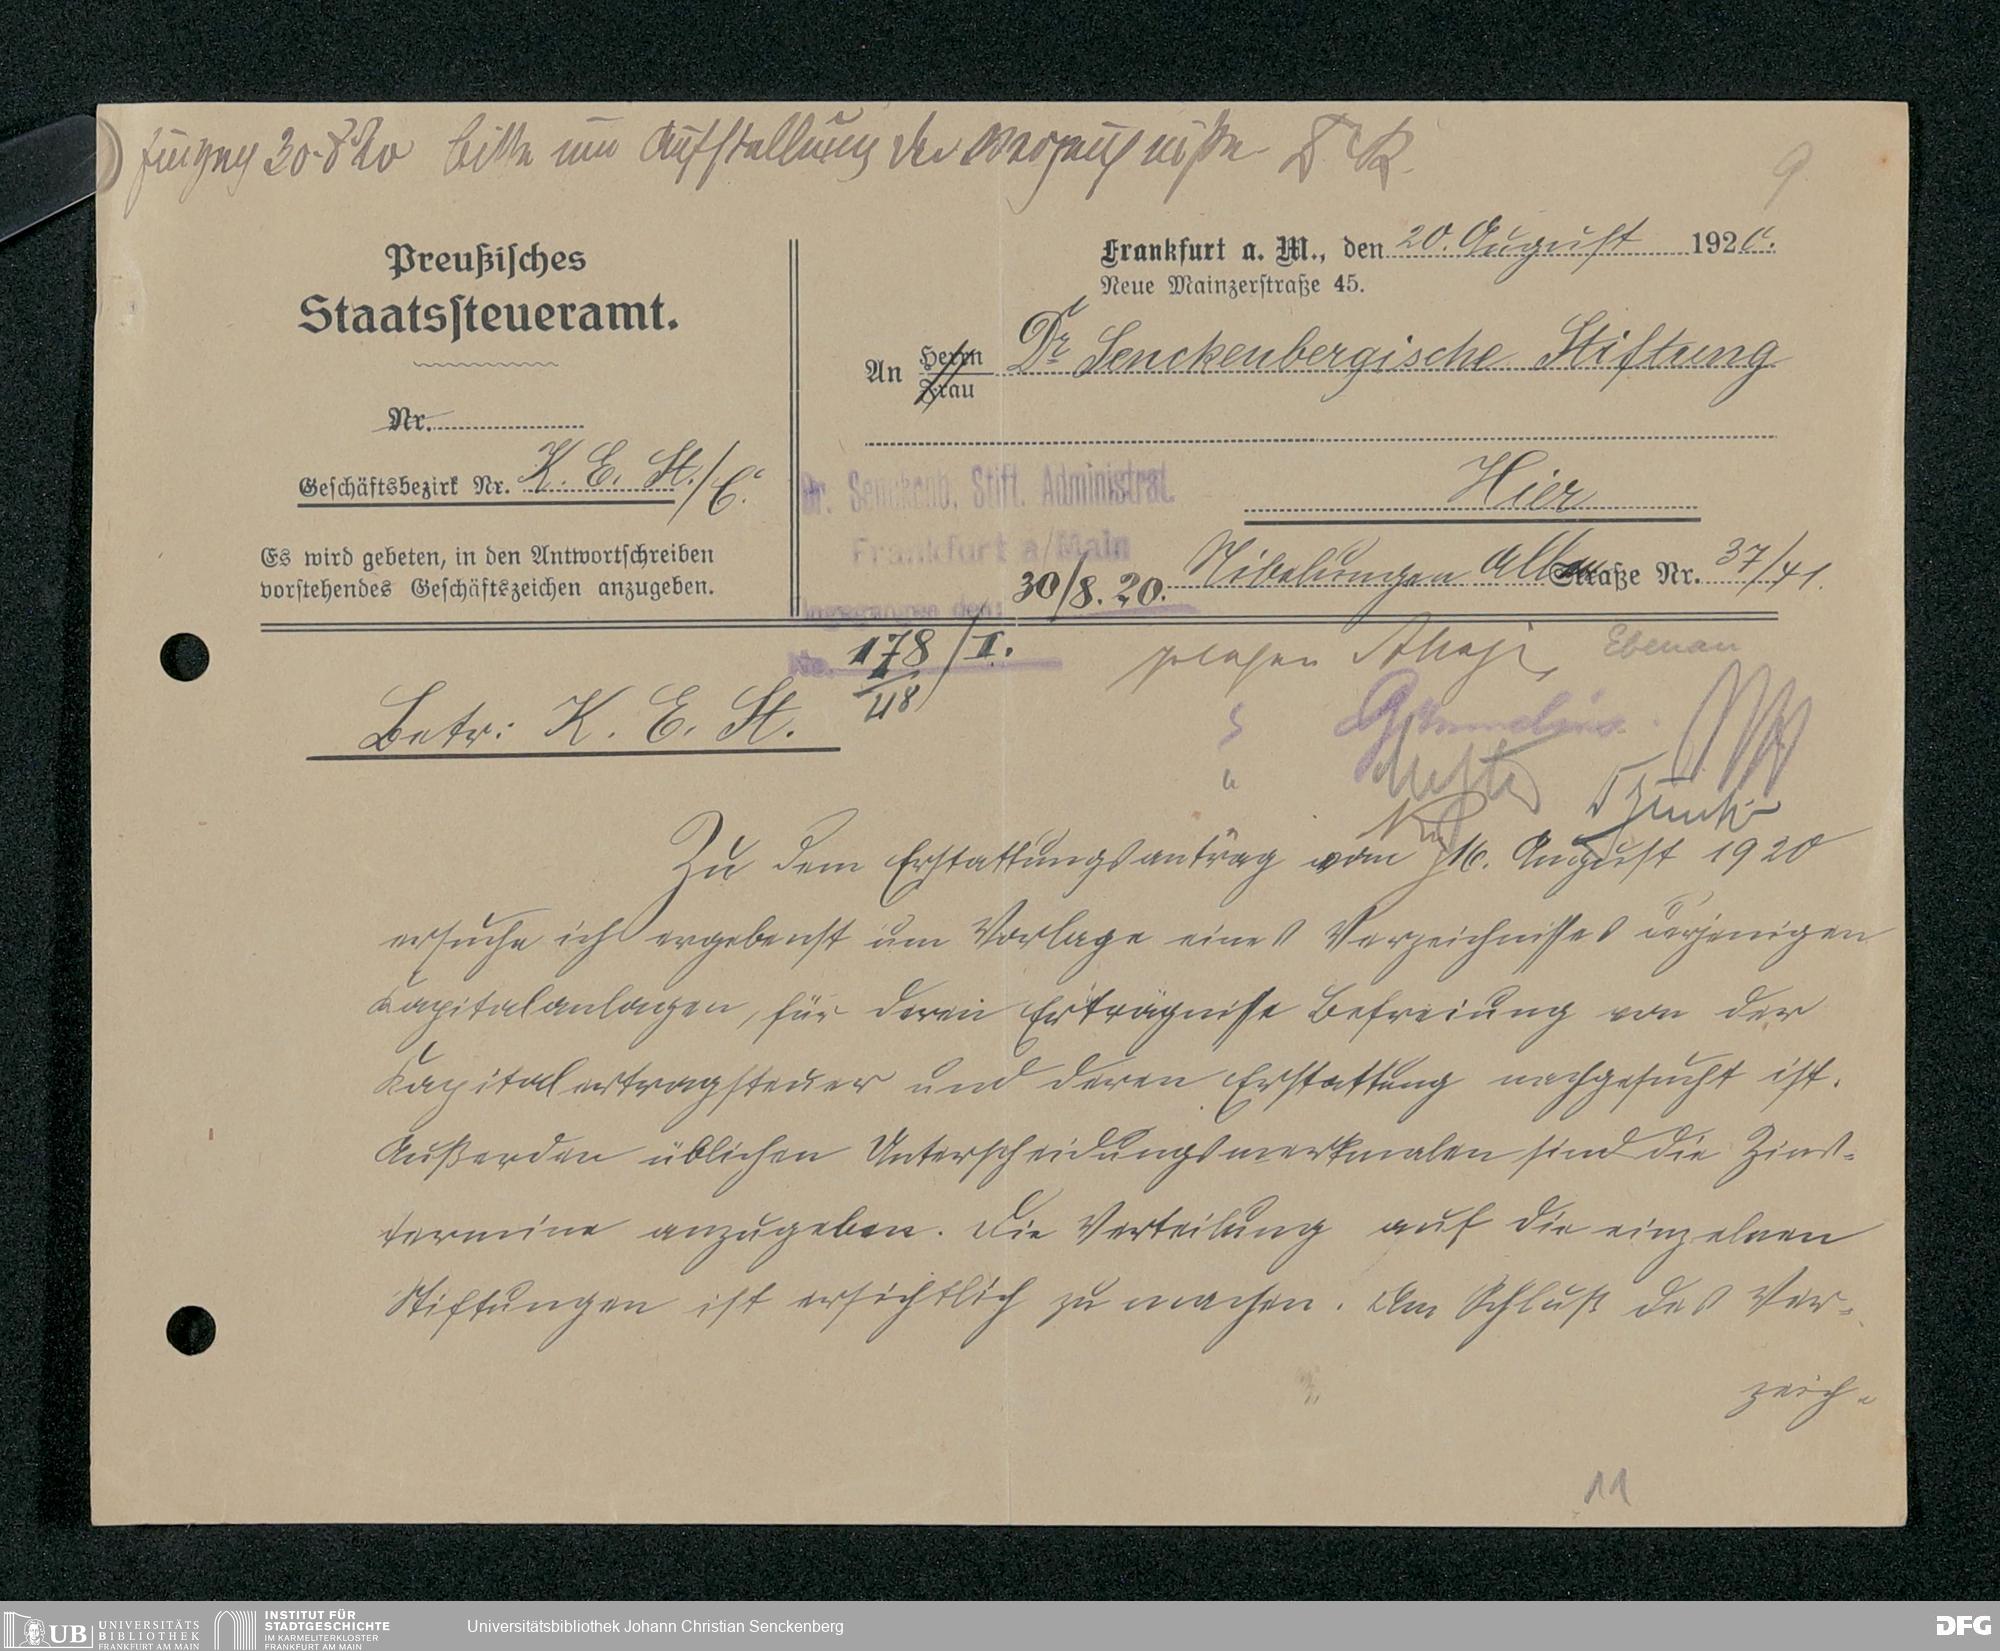 Eingang 30.8.20 bitte um Aufstellung der Verzeichnisse
9
Preußisches
Staatssteueramt.
Nr.
Geschäftsbezirk Nr. K. E. St./C.
Es wird gebeten, in den Antwortschreiben
vorstehendes Geschäftszeichen anzugeben.
Frankfurt a. M., den 20. August 1920.
Neue Mainzerstraße 45.
An Herrn
Frau
Dr Senckenbergische Stiftung
Hier
Nibelungen Allee Straße Nr. 37/41.
Dr. Senckenb. Stift. Administrat.
Frankfurt a/Main
Eingegangen den: 30/8. 20.
No. 178/I.
48
gelesen
Ebenau
Betr: K. E. St.
Zu dem Erstattungsantrag vom 16. August 1920
ersuche ich ergebenst um Vorlage eines Verzeichnisses derjenigen
Kapitalanlagen, für deren Erträgnisse Befreiung von der
Kapitalertragsteuer und deren Erstattung nachgesucht ist.
Außer den üblichen Unterscheidungsmerkmalen sind die Zins-
termine anzugeben. Die Verteilung auf die einzelnen
Stiftungen ist ersichtlich zu machen. Am Schluß des Ver-
zeich-
11
UB UNIVERSITÄTS
BIBLIOTHEK
FRANKFURT AM MAIN
INSTITUT FÜR
STADTGESCHICHTE
IM KARMELITERKLOSTER
FRANKFURT AM MAIN
Universitätsbibliothek Johann Christian Senckenberg
DFG